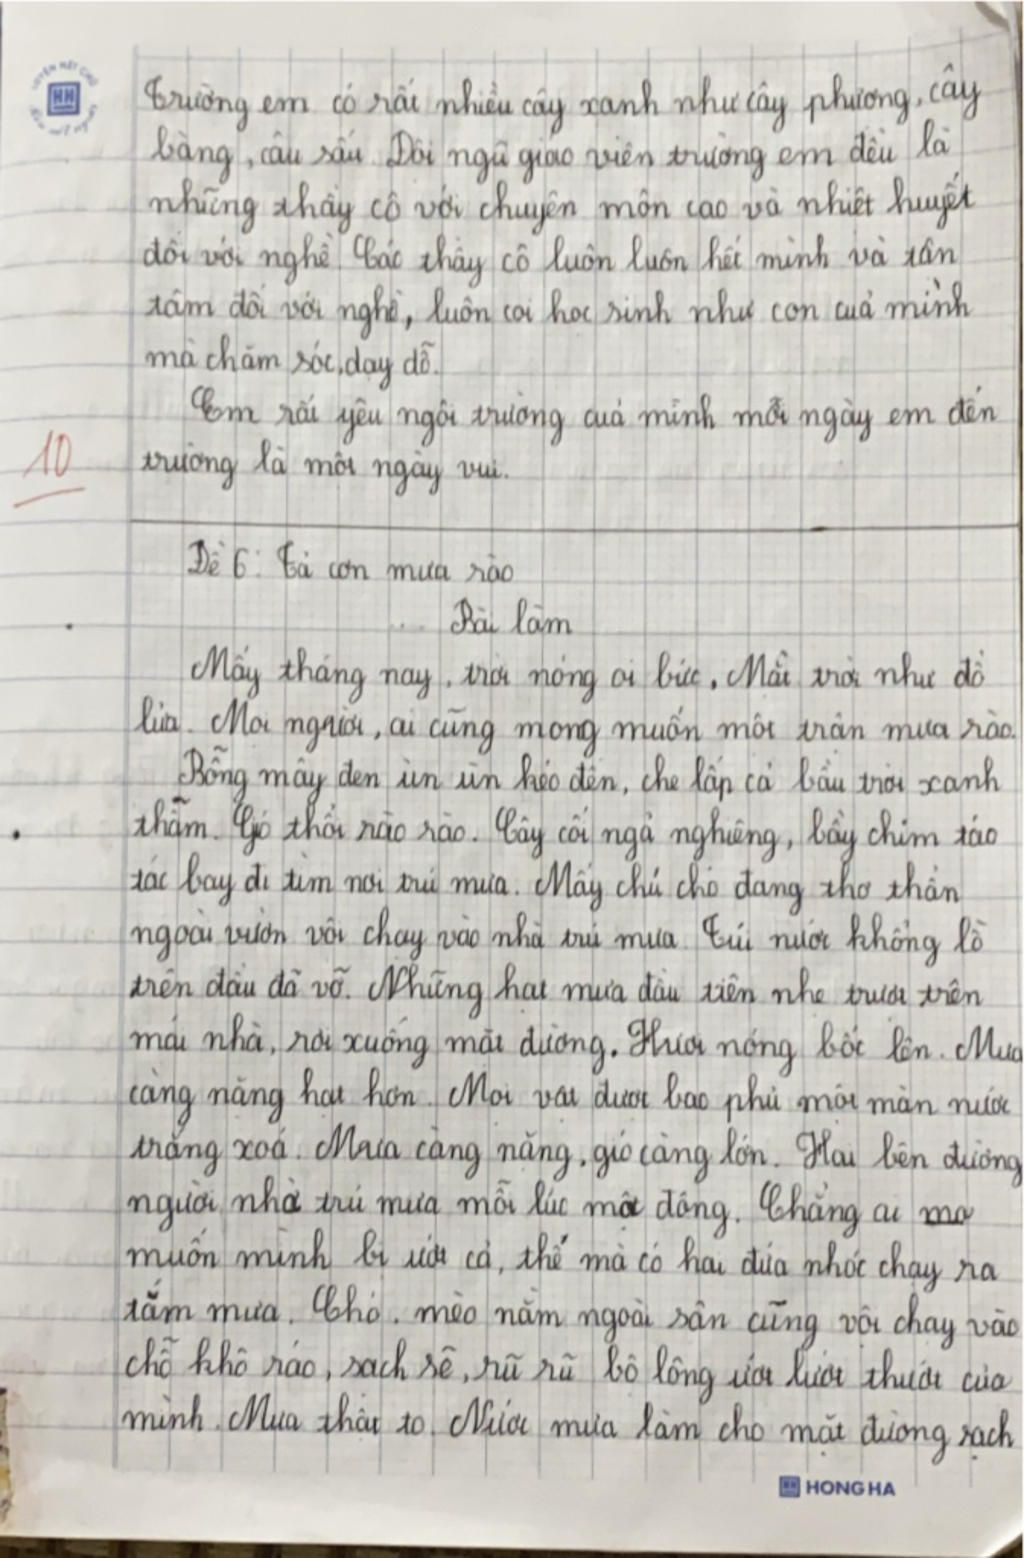 Trường em có rất nhiều cây xanh như cây phượng, cây
bàng, câu sấu. Đội ngũ giáo viên trường em đều là
những thầy cô với chuyên môn cao và nhiệt huyết
đối với nghề. Các thầy cô luôn luôn hết mình và tân
tâm đối với nghề, luôn coi học sinh như con của mình
mà chăm sóc, dạy dỗ.
Em rất yêu ngôi trường của mình mỗi ngày em đến
trường là một ngày vui.
10
Đề 6: Tả cơn mưa rào
Bài làm
Mấy tháng nay, trời nóng oi bức. Mặt trời như đổ
lửa. Mọi người, ai cũng mong muốn một trận mưa rào.
Bỗng mây đen ùn ùn kéo đến, che lấp cả bầu trời xanh
thẳm. Gió thổi rào rào. Cây cối ngả nghiêng, bầy chim táo
tác bay đi tìm nơi trú mưa. Mấy chú chó đang thơ thẩn
ngoài vườn vội chạy vào nhà trú mưa. Túi nước khổng lồ
trên đầu đã vỡ. Những hạt mưa đầu tiên nhẹ trượt trên
mái nhà, rơi xuống mặt đường. Hươi nóng bốc lên. Mưa
càng nặng hạt hơn. Mọi vật được bao phủ một màn nước
trắng xoá. Mưa càng nặng, gió càng lớn. Hai bên đường
người nhà trú mưa mỗi lúc một đông. Chẳng ai
muốn mình bị ướt cả, thế mà có hai đứa nhóc chạy ra
tắm mưa. Chó, mèo nằm ngoài sân cũng vội chạy vào
chỗ khô ráo, sạch sẽ, rũ rũ bộ lông ướt lướt thướt của
mình. Mưa thật to. Nước mưa làm cho mặt đường sạch
HONG HA